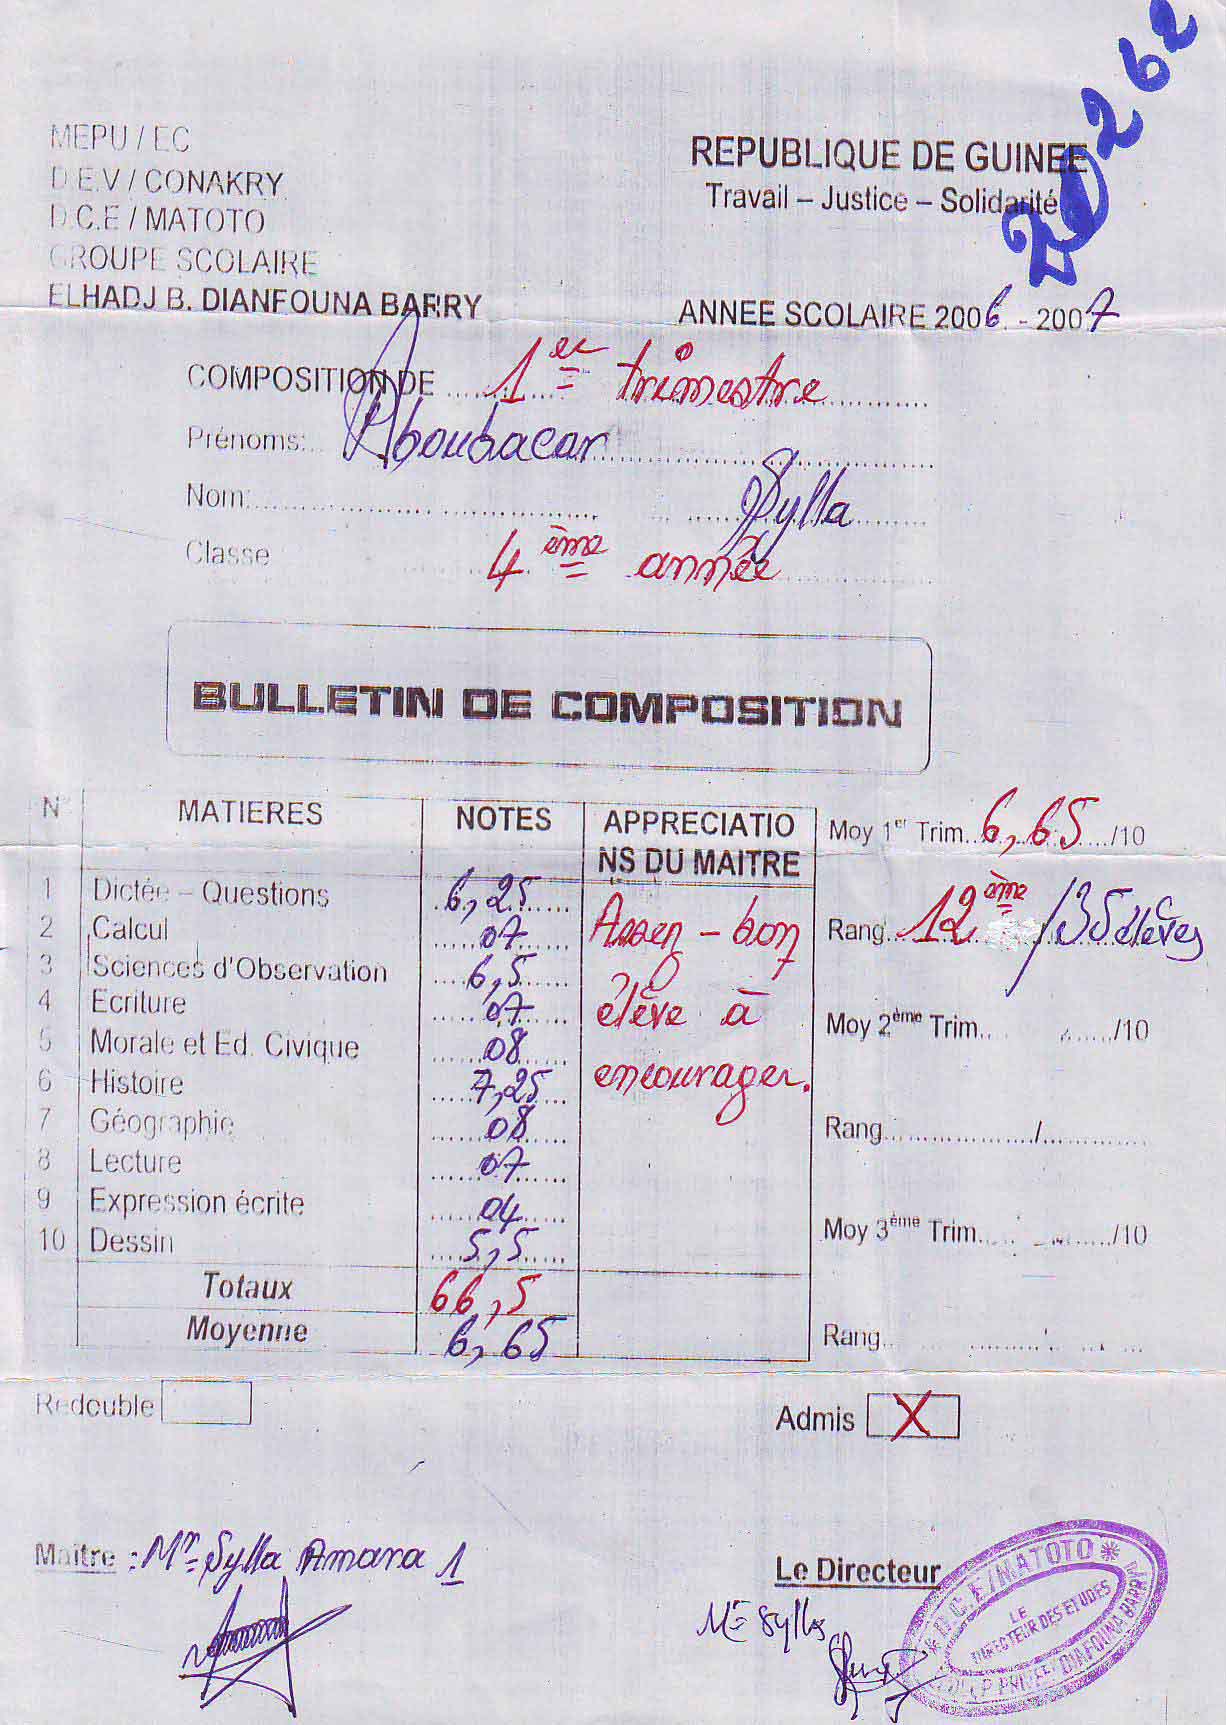 20262
MEPU / EC
D.E.V / CONAKRY
D.C.E / MATOTO
GROUPE SCOLAIRE
ELHADJ B. DIANFOUNA BARRY
REPUBLIQUE DE GUINEE
Travail – Justice – Solidarité
ANNEE SCOLAIRE 2006 - 2007
COMPOSITION DE 1er trimestre
Prénoms: Aboubacar
Nom: Sylla
Classe 4ème année
BULLETIN DE COMPOSITION
N° MATIERES NOTES APPRECIATIONS DU MAITRE
1 Dictée – Questions 6,25
2 Calcul 07
3 Sciences d'Observation 6,5
4 Ecriture 07
5 Morale et Ed. Civique 08
6 Histoire 7,25
7 Géographie 08
8 Lecture 07
9 Expression écrite 04
10 Dessin 5,5
Totaux 66,5
Moyenne 6,65
Assez-bon
élève à
encourager.
Moy 1er Trim. 6,65 /10
Rang 12ème /35 élèves
Moy 2ème Trim. /10
Rang /
Moy 3ème Trim. /10
Rang
Redouble
Admis X
Maître : Mr Sylla Amara 1
Le Directeur
Sylla
D.C.E / MATOTO
LE
DIRECTEUR DES ETUDES
DIAFOUNA BARRY